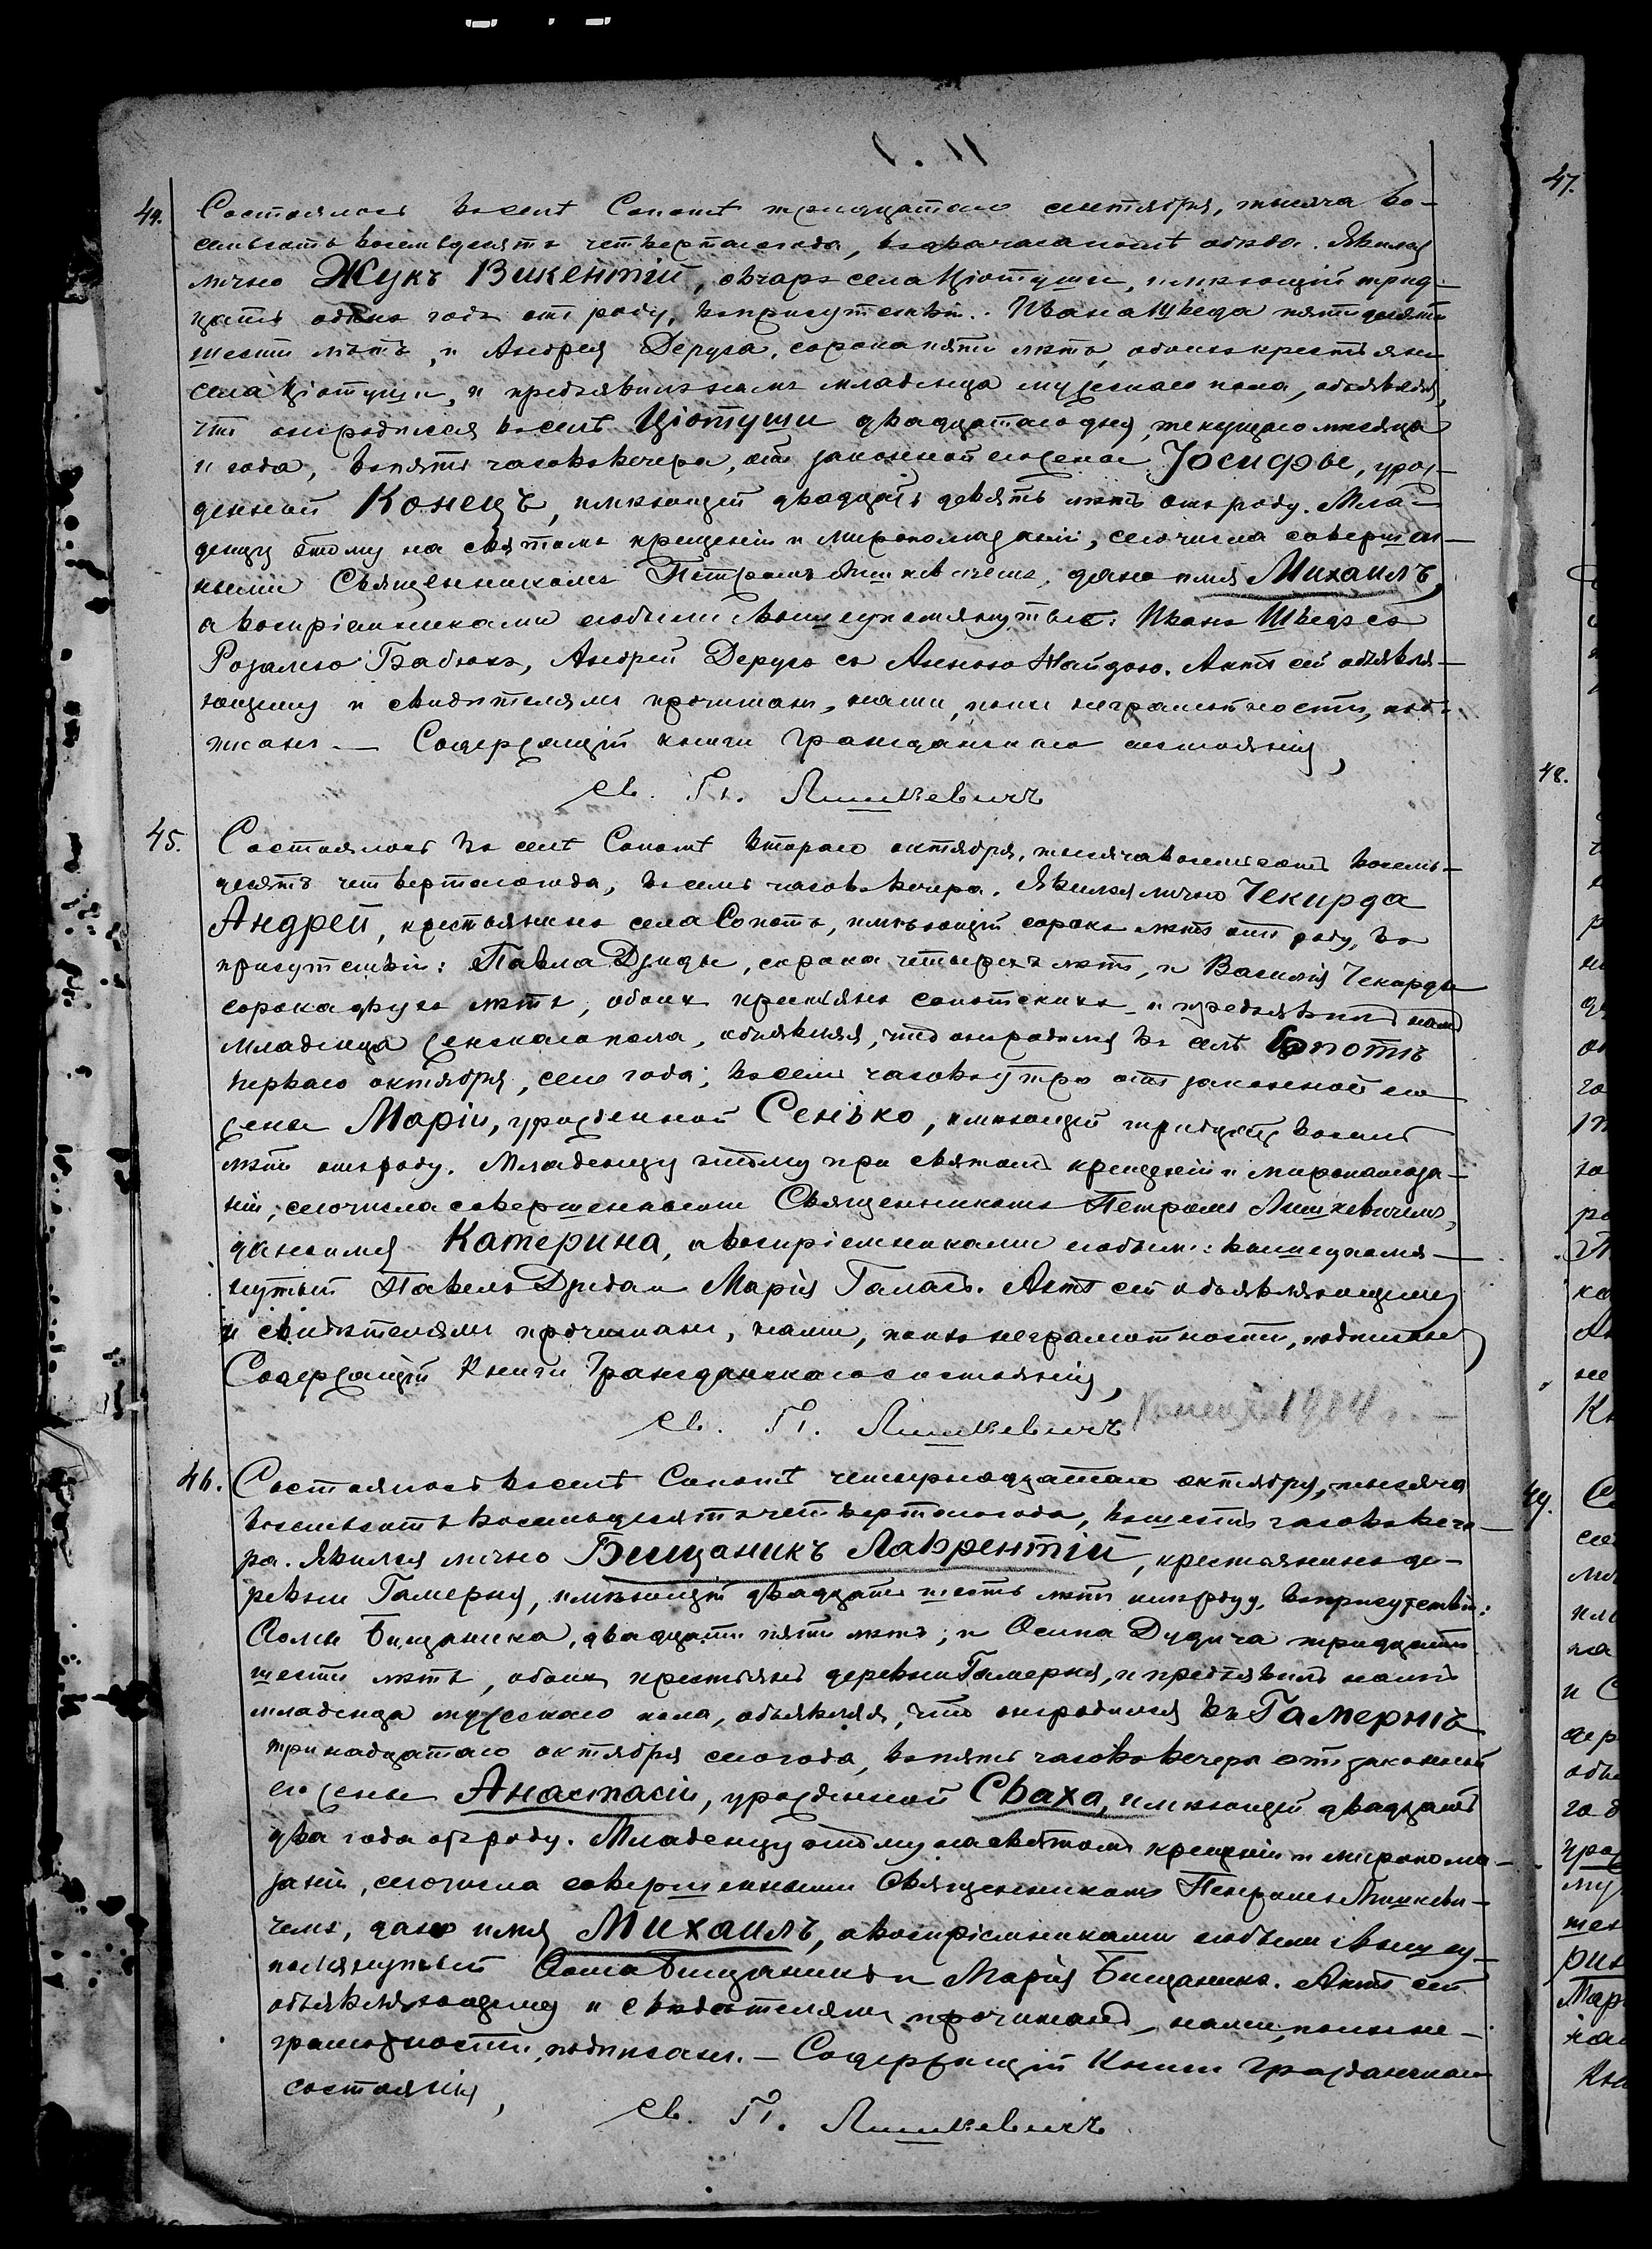 44. Состоялось въ селѣ Сопотѣ тридцатаго сентября, тысяча во-
семьсотъ восемьдесятъ четвертаго года, въ два часа послѣ обѣда. Явился
лично Жукъ Викентій, овчаръ села Ціотуши, имѣющій трид-
цать одинъ годъ отъ роду, въ присутствіи: Ивана Шведа пятидесяти
шести лѣтъ, и Андрея Деруса, сорока пяти лѣтъ, обоихъ крестьянъ
села Ціотуши, и предъявилъ намъ младенца мужескаго пола, объявляя,
что онъ родился въ селѣ Ціотуши двадцатаго дня, текущаго мѣсяца
и года, въ пять часовъ вечера, отъ законной его жены Іосифы, урож-
денной Конецъ, имѣющей двадцать девять лѣтъ отъ роду. Мла-
денцу этому на святомъ крещеніи и миропомазаніи, сего числа совершен-
ными Священникомъ Петромъ Лишкевичемъ, дано имя Михаилъ,
а воспріемниками его были вышеупомянутые: Иванъ Шведъ съ
Розалею Бабюкъ, Андрей Дерусъ съ Анною Найдою. Актъ сей объявля-
ющему и свидѣтелямъ прочитанъ, нами, по ихъ неграмотности, под-
писанъ. — Содержащій книги гражданскаго состоянія,
Св. П. Лишкевичъ
45. Состоялось въ селѣ Сопотѣ втораго октября, тысяча восемьсотъ восемь-
десятъ четвертаго года, въ семь часовъ вечера. Явился лично Чекирда
Андрей, крестьянинъ села Сопотъ, имѣющій сорокъ лѣтъ отъ роду, въ
присутствіи: Павла Дзиды, сорока четырехъ лѣтъ, и Василія Чекирды
сорока двухъ лѣтъ, обоихъ крестьянъ сопотскихъ, и предъявилъ намъ
младенца женскаго пола, объявляя, что онъ родился въ селѣ Сопотъ
перваго октября, сего года, въ семь часовъ утра отъ законной его
жены Маріи, урожденной Сенько, имѣющей тридцать восемь
лѣтъ отъ роду. Младенцу этому при святомъ крещеніи и миропомаза-
ніи, сего числа совершенными Священникомъ Петромъ Лишкевичемъ,
дано имя Катерина, а воспріемниками его были: вышеупомя-
нутый Павелъ Дзида и Марія Галась. Актъ сей объявляющему
и свидѣтелямъ прочитанъ, нами, по ихъ неграмотности, подписанъ
Содержащій Книги Гражданскаго состоянія,
Св. П. Лишкевичъ
46. Состоялось въ селѣ Сопотѣ четырнадцатаго октября, тысяча
восемьсотъ восемьдесятъ четвертаго года, въ шесть часовъ вече-
ра. Явился лично Бищаникъ Лаврентій, крестьянинъ де-
ревни Гамерня, имѣющій двадцать шесть лѣтъ отъ роду, въ присутствіи:
Ѳомы Бищаника, двадцати пяти лѣтъ, и Осипа Дудича тридцати
шести лѣтъ, обоихъ крестьянъ деревни Гамерня, и предъявилъ намъ
младенца мужескаго пола, объявляя, что онъ родился въ Гамернѣ
тринадцатаго октября сего года, въ пять часовъ вечера отъ законной
его жены Анастасіи, урожденной Сваха, имѣющей двадцать
два года отъ роду. Младенцу этому на святомъ крещеніи и миропома-
заніи, сего числа совершенными Священникомъ Петромъ Лишкеви-
чемъ, дано имя Михаилъ, а воспріемниками его были вышеу-
помянутый Ѳома Бищаникъ и Марія Бищаникъ. Актъ сей
объявляющему и свидѣтелямъ прочитанъ, нами, по ихъ не-
грамотности, подписанъ. — Содержащій Книги Гражданскаго
состоянія,
Св. П. Лишкевичъ
47.
48.
49.